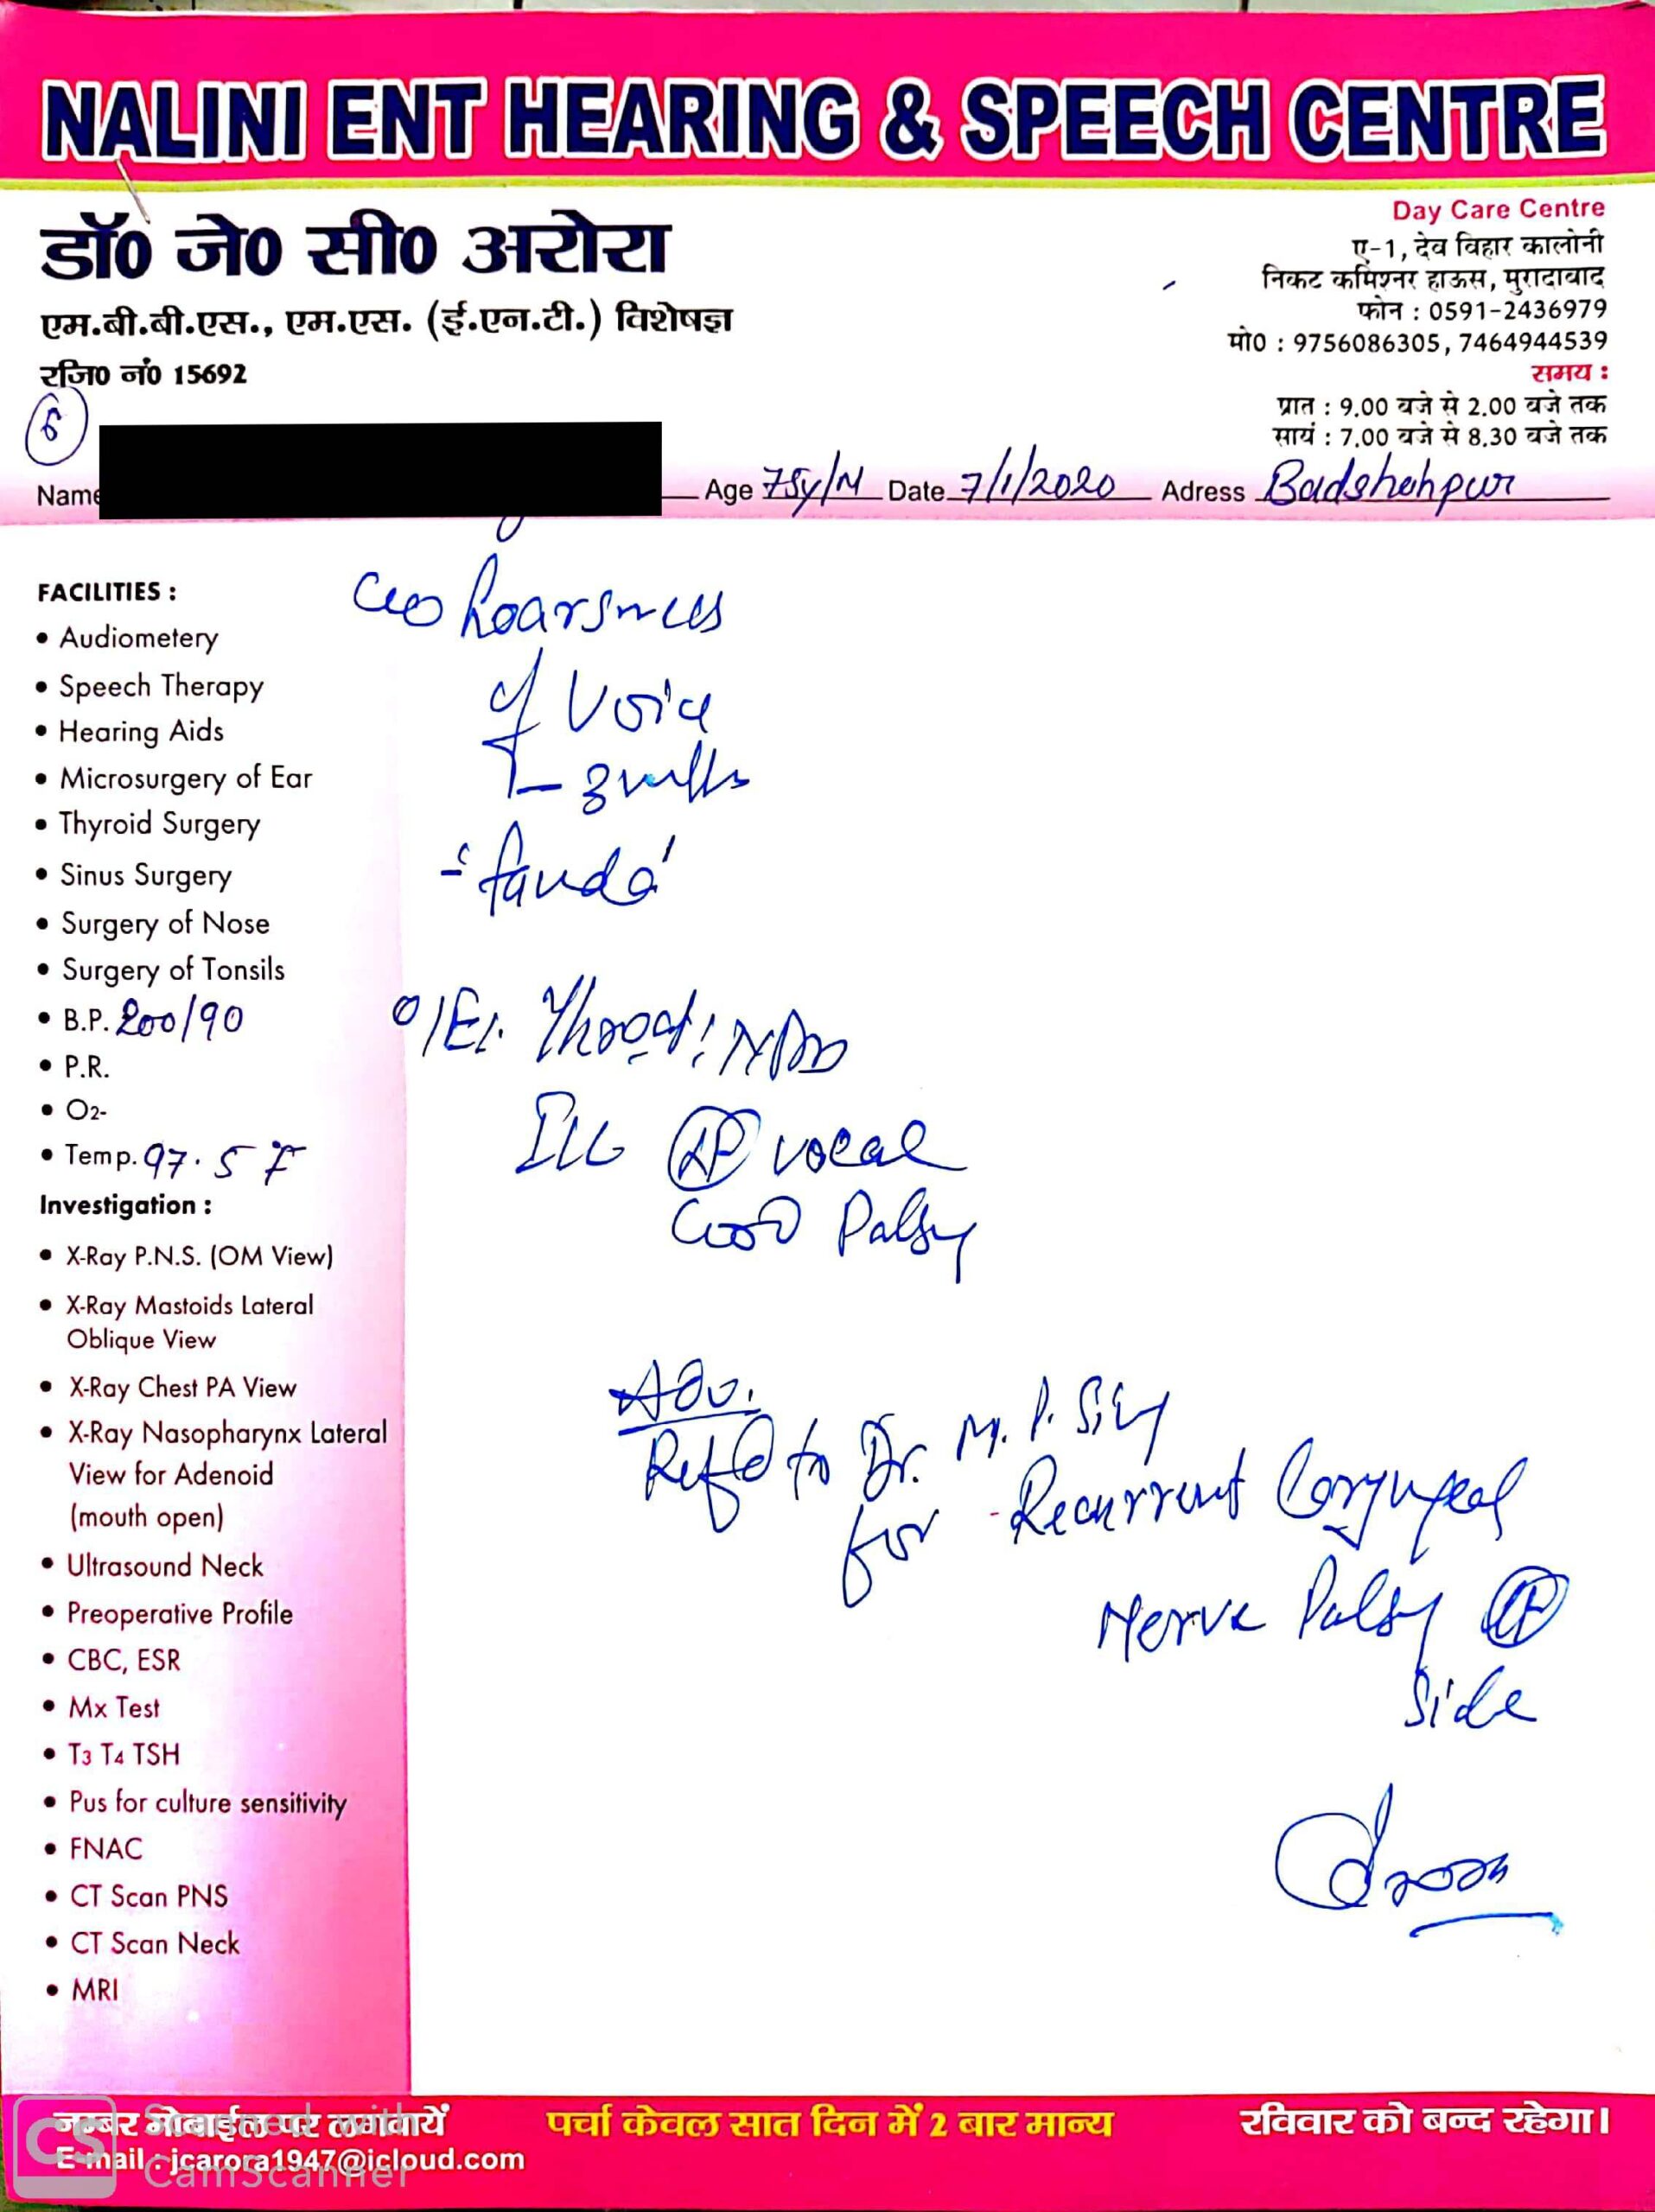 NALINI ENT HEARING & SPEECH CENTRE
डॉ0 जे0 सी0 अरोरा
एम.बी.बी.एस., एम.एस. (ई.एन.टी.) विशेषज्ञ
रजि0 नं0 15692
Day Care Centre
ए-1, देव विहार कालोनी
निकट कमिश्नर हाऊस, मुरादाबाद
फोन : 0591-2436979
मो0 : 9756086305, 7464944539
समय :
प्रात : 9.00 बजे से 2.00 बजे तक
सायं : 7.00 बजे से 8.30 बजे तक
Name Age 75y/M Date 7/1/2020 Adress Badshahpur
FACILITIES :
• Audiometery
• Speech Therapy
• Hearing Aids
• Microsurgery of Ear
• Thyroid Surgery
• Sinus Surgery
• Surgery of Nose
• Surgery of Tonsils
• B.P. 200/90
• P.R.
• O2-
• Temp. 97.5 F
Investigation :
• X-Ray P.N.S. (OM View)
• X-Ray Mastoids Lateral
Oblique View
• X-Ray Chest PA View
• X-Ray Nasopharynx Lateral
View for Adenoid
(mouth open)
• Ultrasound Neck
• Preoperative Profile
• CBC, ESR
• Mx Test
• T3 T4 TSH
• Pus for culture sensitivity
• FNAC
• CT Scan PNS
• CT Scan Neck
• MRI
hoarsness
of Voice
O/E. Throat: NAD
vocal
Cord Palsy
Adv.
Refd to Dr. M. P.
for Recurrent Laryngeal
Nerve Palsy
Side
नम्बर मोबाईल पर लगवायें
पर्चा केवल सात दिन में 2 बार मान्य
रविवार को बन्द रहेगा।
E-mail : jcarora1947@icloud.com
CS
Scanned with
CamScanner